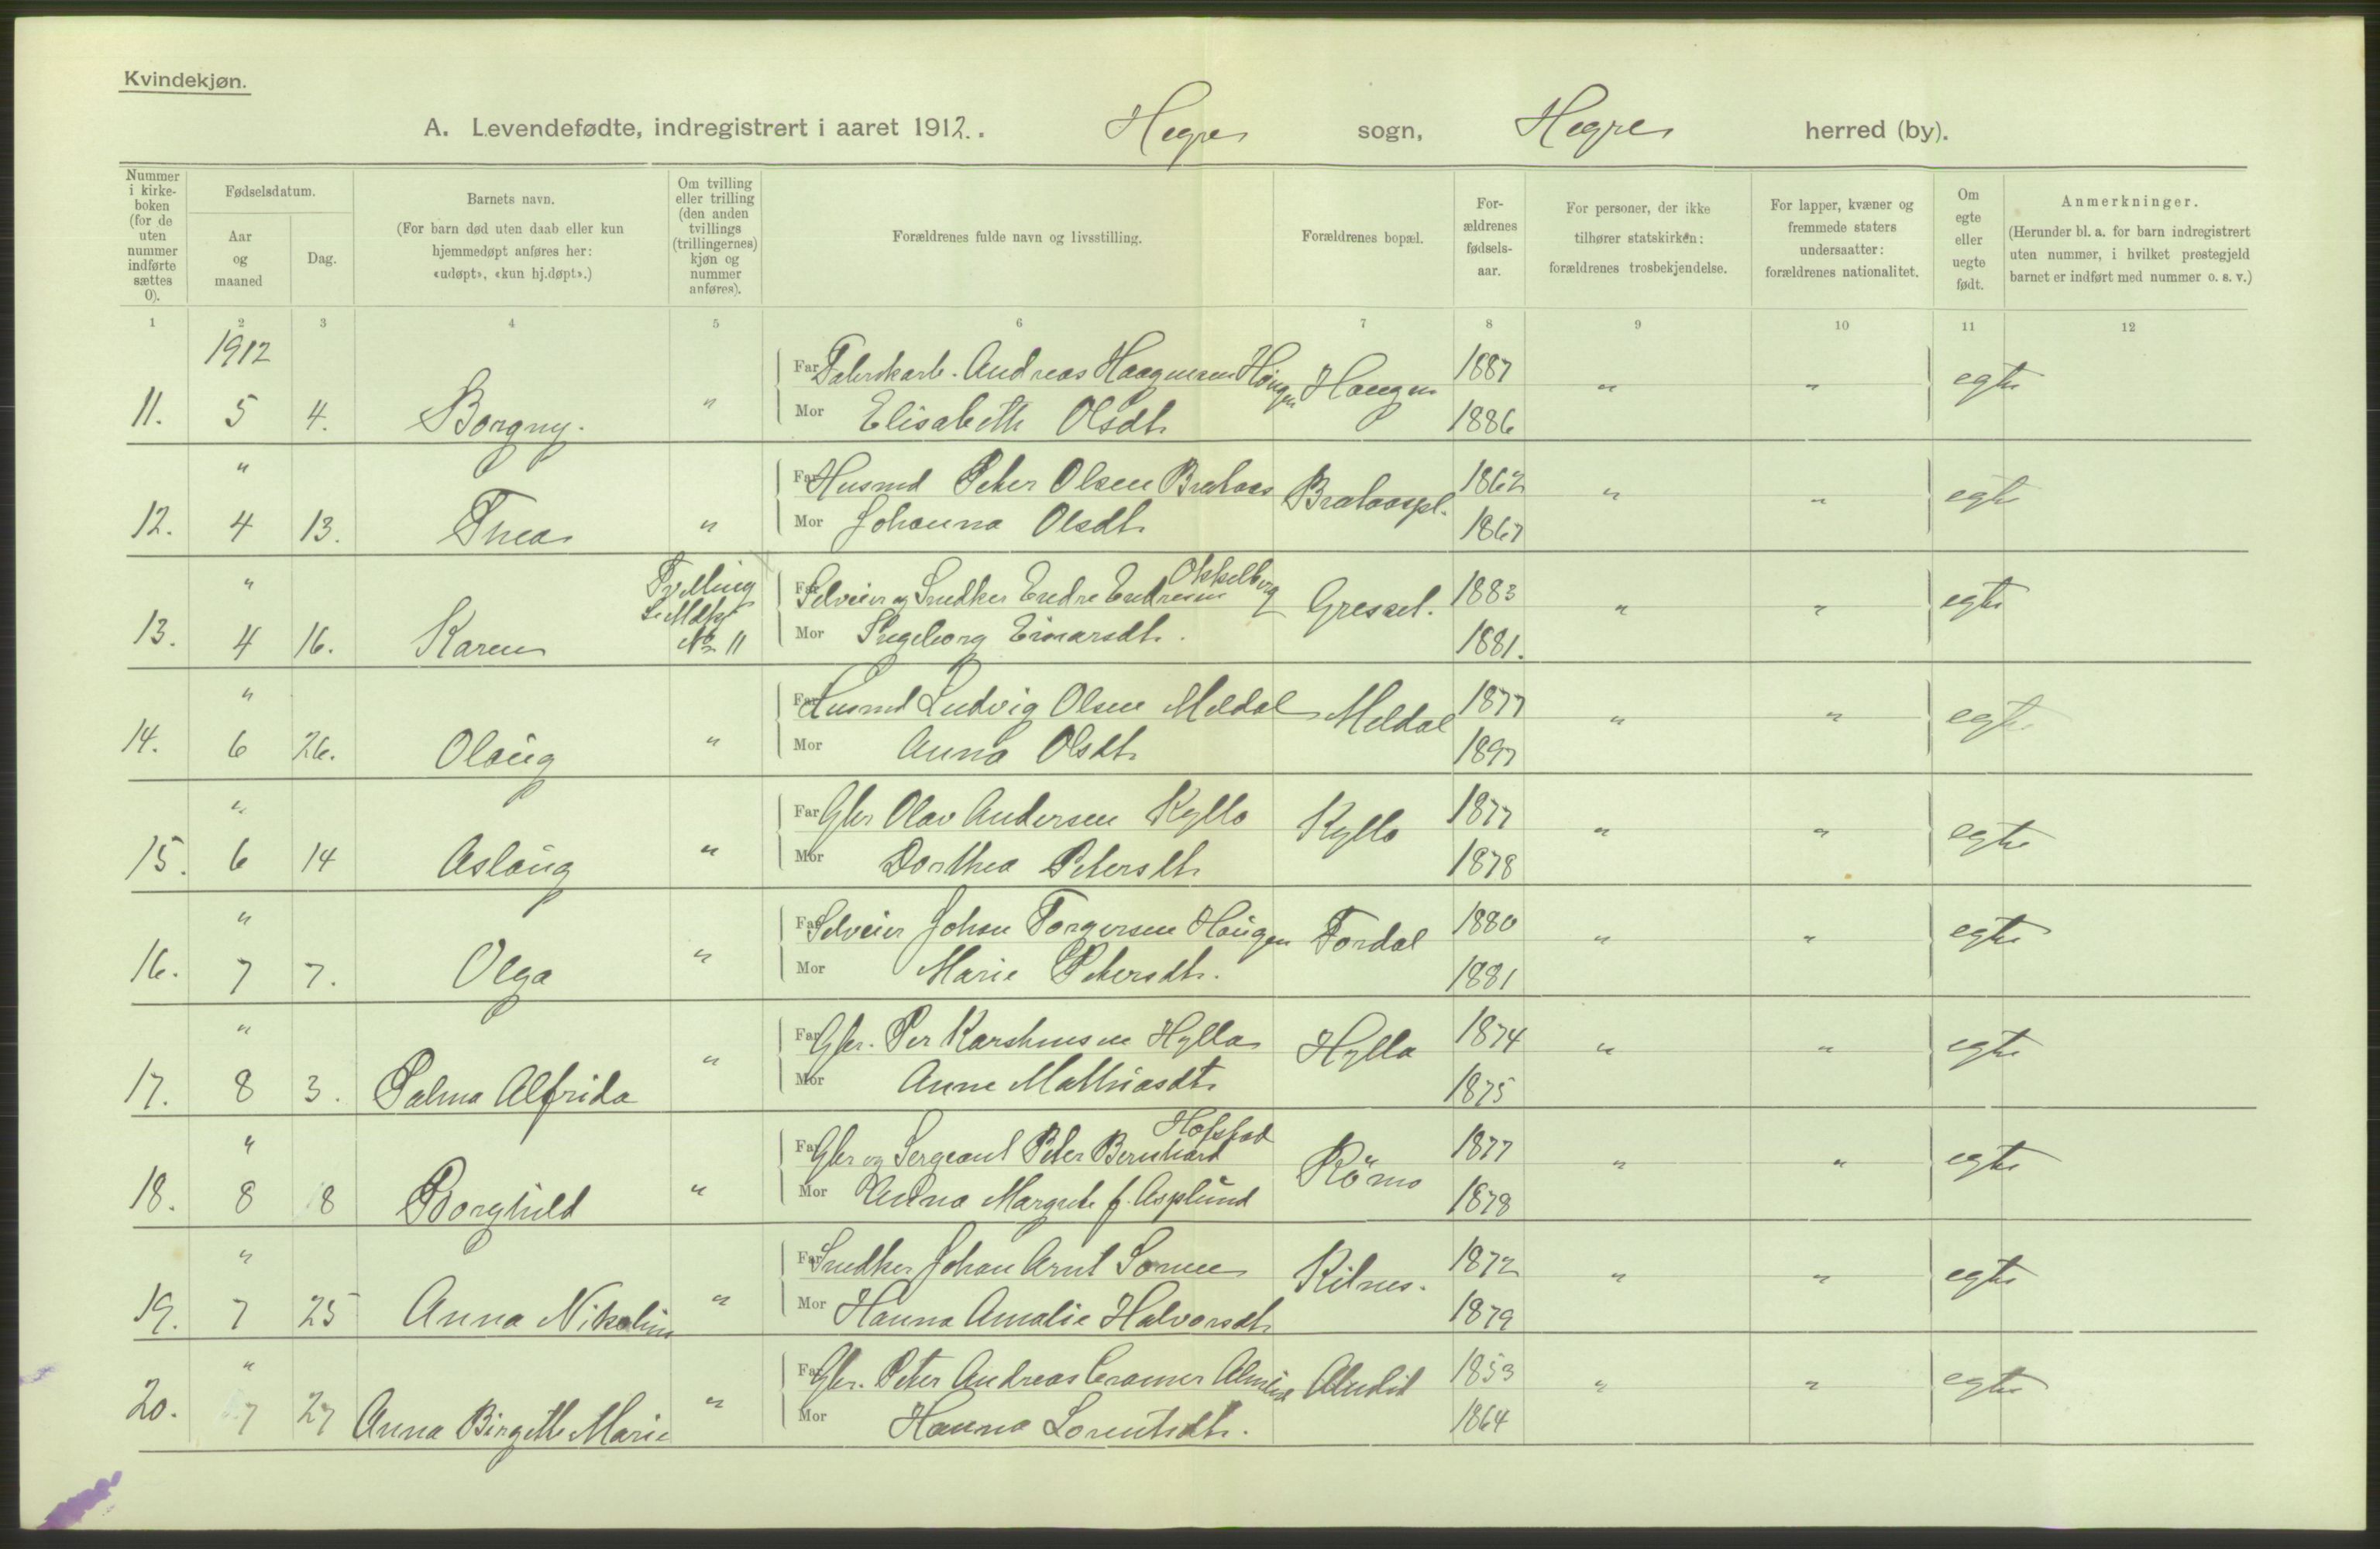 Kvindekjøn.
A. Levendefødte, indregistrert i aaret 1912. Hegre sogn, Hegre herred (by).
Nummer i kirke-boken (for de uten nummer indførte sættes 0).
Fødselsdatum.
Aar og maaned
Dag.
Barnets navn.
(For barn død uten daab eller kun hjemmedøpt anføres her: «udøpt», «kun hj.døpt».)
Om tvilling eller trilling (den anden tvillings (trillingernes) kjøn og nummer anføres).
Forældrenes fulde navn og livsstilling.
Forældrenes bopæl.
For-ældrenes fødsels-aar.
For personer, der ikke tilhører statskirken: forældrenes trosbekjendelse.
For lapper, kvæner og fremmede staters undersaatter: forældrenes nationalitet.
Om egte eller uegte født.
Anmerkninger.
(Herunder bl. a. for barn indregistrert uten nummer, i hvilket prestegjeld barnet er indført med nummer o. s. v.)
1 2 3 4 5 6 7 8 9 10 11 12
1912
Far Andreas Haagensen Haugen Haugen 1887 " " egte
11. 5 4. Borgny. " Mor Elisabeth Olsdtr 1886
" Far Husmd Peter Olsen Brataas Brataaspl. 1862 " " egte
12. 4 13. Thea " Mor Johanna Olsdtr 1867
" Tvilling Far Selveier og Snedker Endre Endresen Okkelberg Gressel. 1883 " " egte
13. 4 16. Karen No 11 Mor Ingeborg Einarsdtr. 1881.
" Far Husmd Ludvig Olsen Meldal Meldal 1877 " " egte
14. 6 26. Olaug " Mor Anna Olsdtr 1897
" Far Gbr Olav Andersen Kyllo Kyllo 1877 " " egte
15. 6 14 Aslaug " Mor Dorthea Petersdtr 1878
" Far Selveier Johan Torgersen Haugen Fordal 1880 " " egte
16. 7 7. Olga " Mor Marie Petersdtr. 1881
" Far Gbr. Per Karstensen Hylla Hylla 1874 " " egte
17. 8 3. Palma Alfrida " Mor Anne Mathiasdtr 1875
" Far Gbr og Sergeant Peter Bernhard Hofstad Römo 1877 " " egte
18. 8 8 Borghild " Mor Anna Margrete f. Asplund 1878
" Far Snedker Johan Arnt Sonne Kilnes. 1872 " " egte
19. 7 25 Anna Nikoline " Mor Hanna Amalie Halvorsdtr 1879
" Far Gbr. Peter Andreas Cramer 1853 " " egte
20. 7 27 Anna Birgitte Marie " Mor Hanna Lorentsdtr. 1864